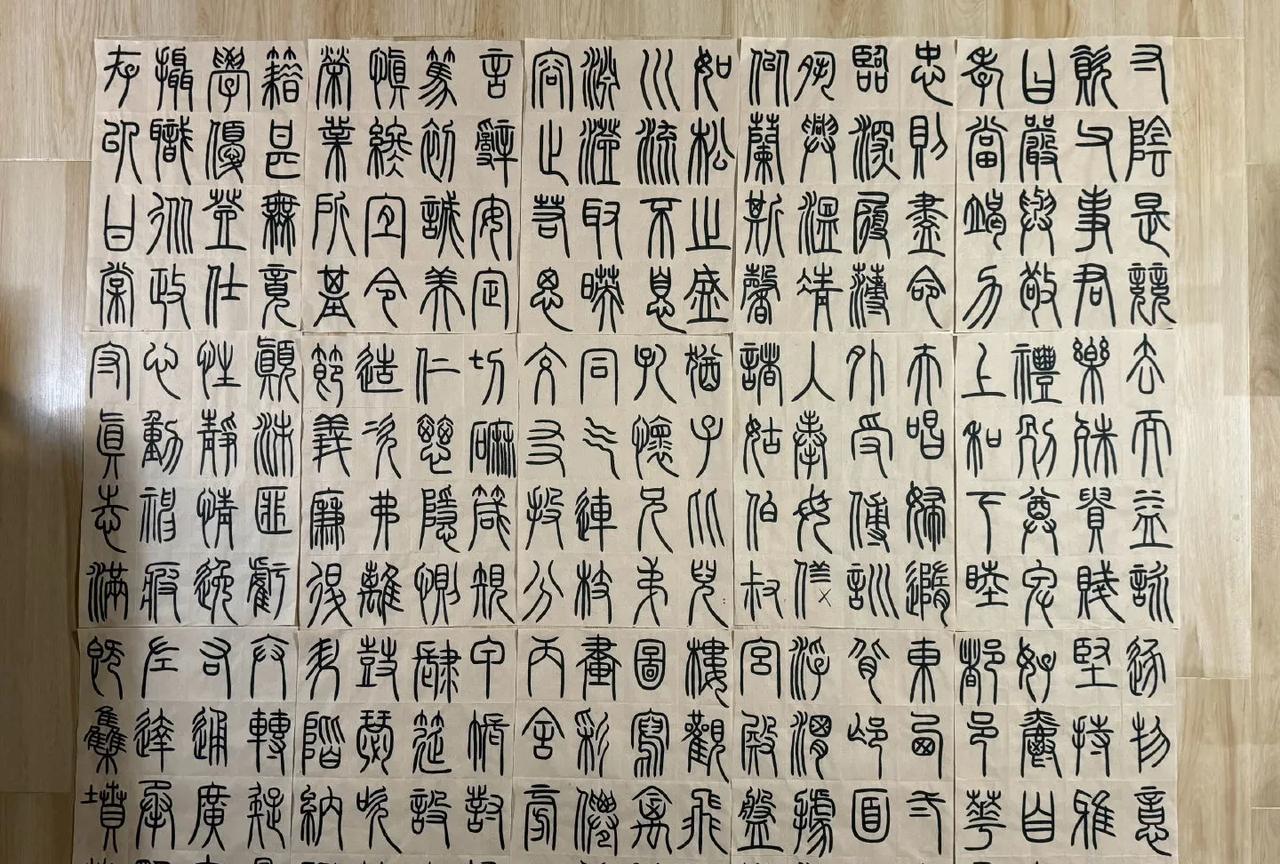 寸陰是競
資父事君
曰嚴與敬
孝當竭力
忠則盡命
臨深履薄
夙興溫凊
似蘭斯馨
如松之盛
川流不息
淵澄取映
容止若思
言辭安定
篤初誠美
慎終宜令
榮業所基
籍甚無竟
學優登仕
攝職從政
存以甘棠
去而益詠
樂殊貴賤
禮別尊卑
上和下睦
夫唱婦隨
外受傅訓
入奉母儀
諸姑伯叔
猶子比兒
孔懷兄弟
同氣連枝
交友投分
切磨箴規
仁慈隱惻
造次弗離
節義廉退
顛沛匪虧
性靜情逸
心動神疲
守真志滿
逐物意
堅持雅
好爵自
都邑華
東西二
背邙面
浮渭據
宮殿盤
樓觀飛
圖寫禽
畫彩仙
丙舍傍
甲帳對
肆筵設
鼓瑟吹
升階納
弁轉疑
右通廣
左達承
既集墳